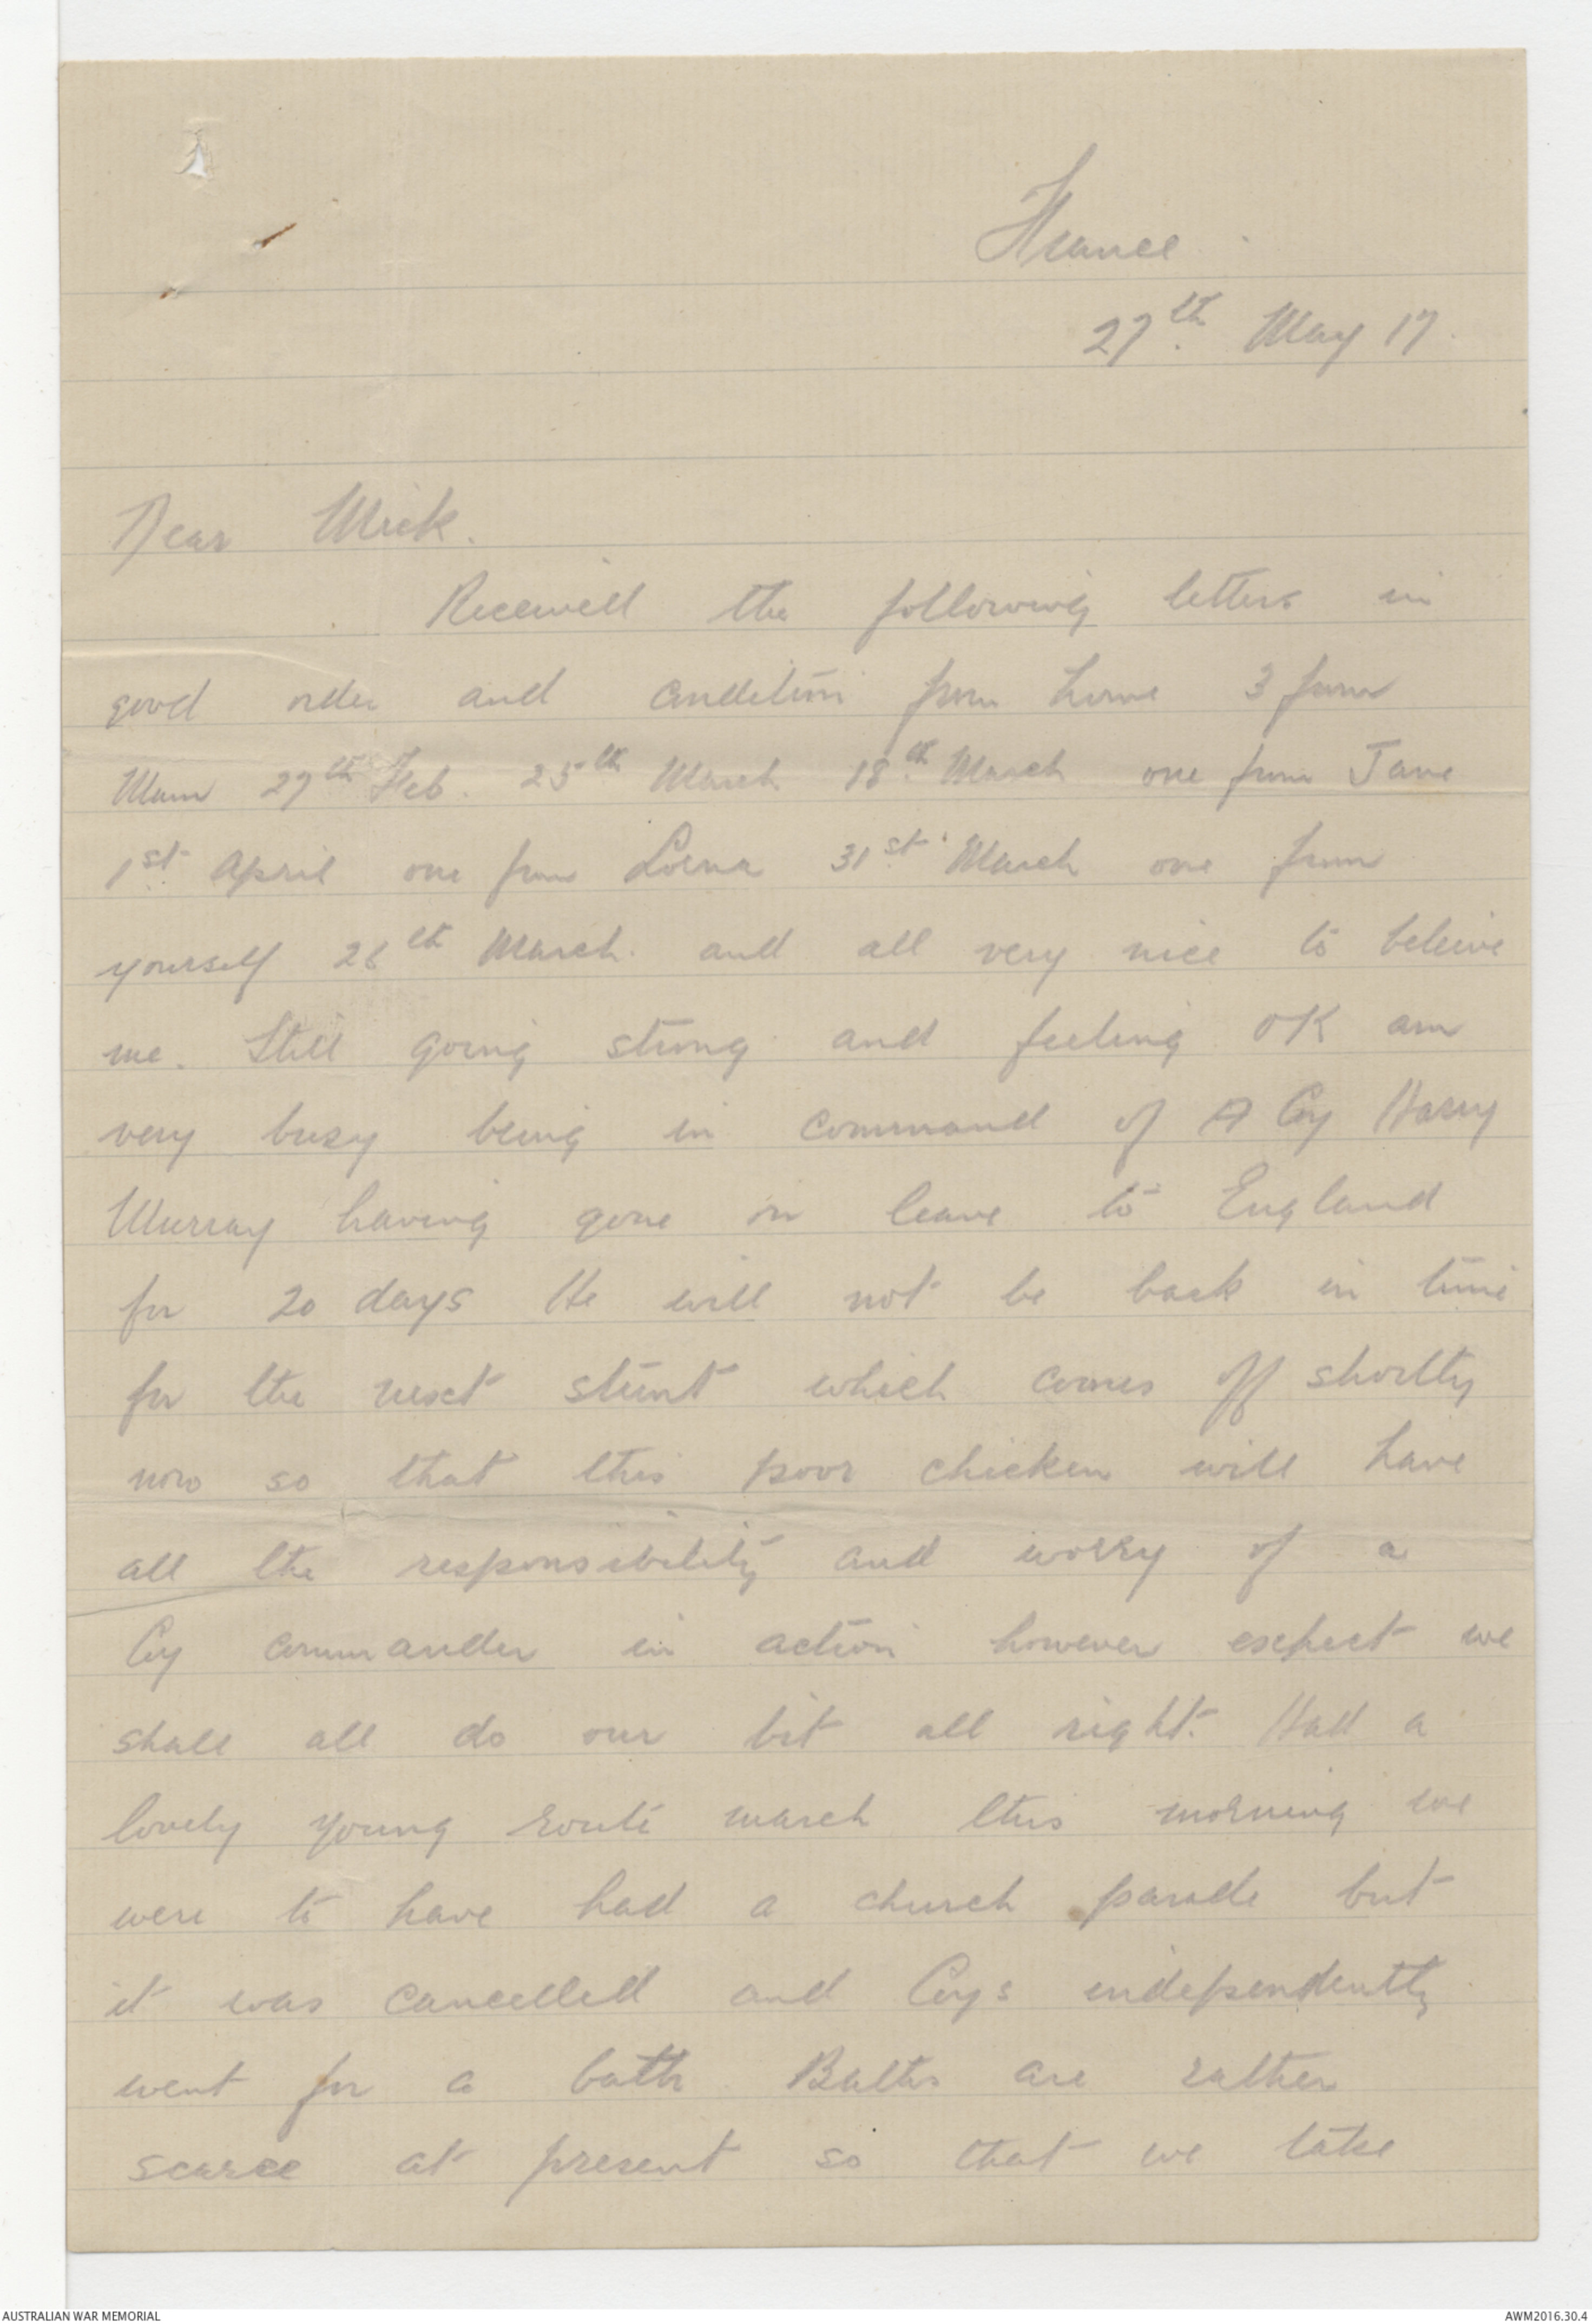 France
27th May 17
Dear Mick.
Received the following letters in
good order and condition from home 3 from
Mum 27th Feb. 25th March 18th March one from Jane
1st April one from Lorna 31st March one from
yourself 26th March. and all very nice to beleive
me. Still going strong and feeling OK am
very busy being in command of A Coy Harry
Murray having gone on leave to England
for 20 days He will not be back in time
for the next stunt which comes off shortly
now so that this poor chicken will have
all the responsibility and worry of a
Coy commander in action however expect we
shall all do our bit all right. Had a
lovely young route march this morning we
were to have had a church parade but
it was cancelled and Coys independently
went for a bath Baths are rather
scarce at present so that we take
AUSTRALIAN WAR MEMORIAL
AWM2016.30.4